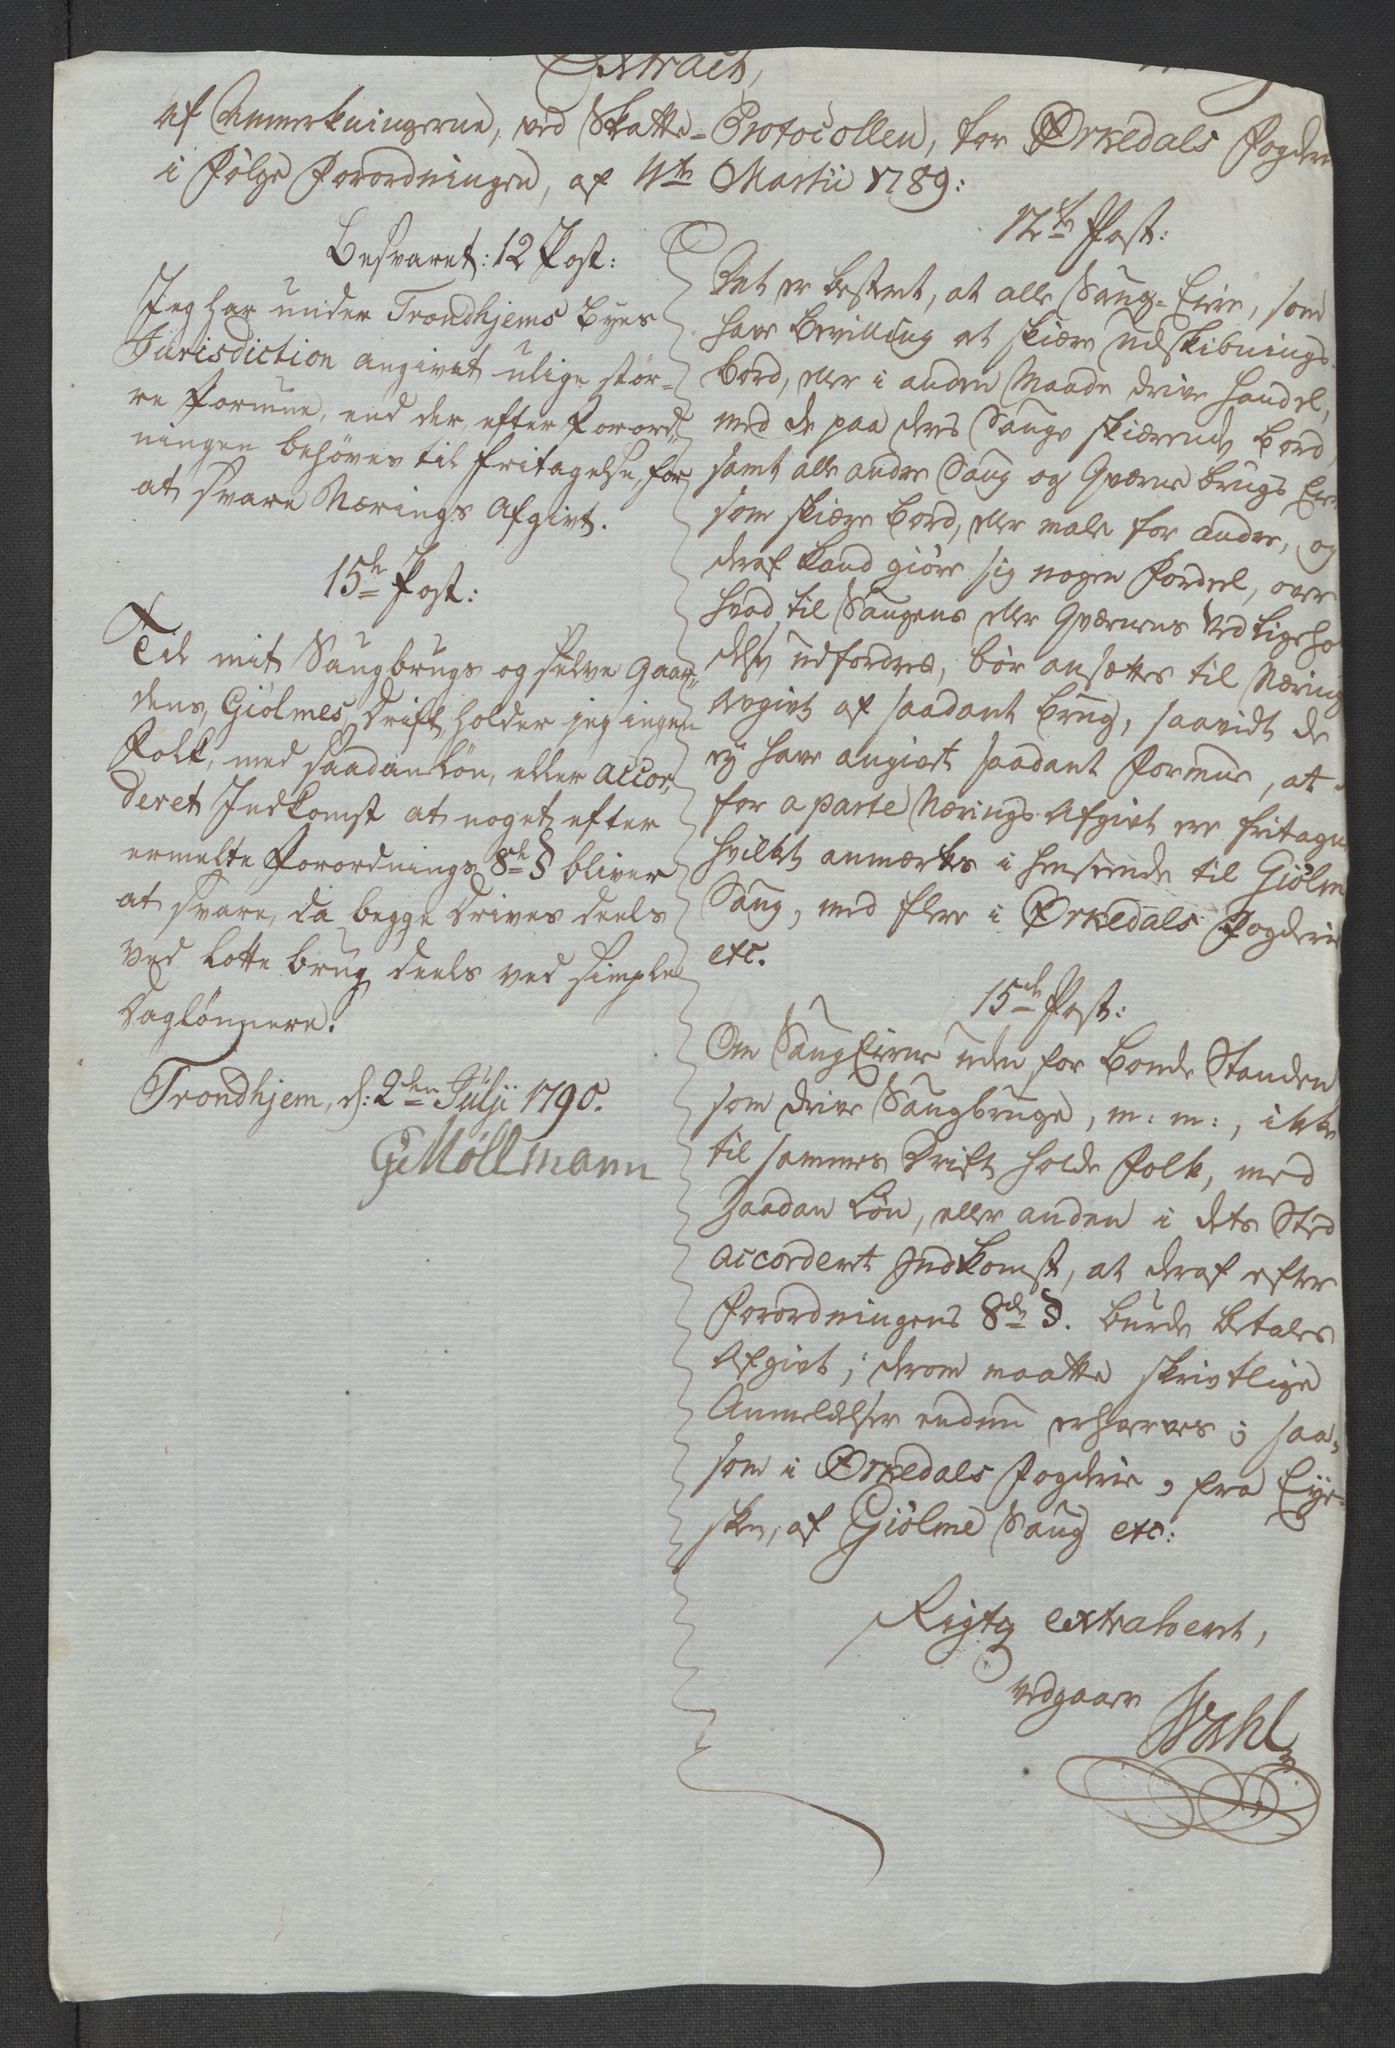 Extract,
af Anmerkningerne, ved Skatte-Protocollen, for Ørkedals Fogderie
i Følge Forordningen, af 11te Martii 1789:
Besvaret: 12 Post:
Jeg har under Trondhjems Byes
Jurisdiction angivet ulige stør-
re Formue, end der, efter Forord-
ningen behöves til fritagelse, for
at svare Nærings Afgivt.
15de Post:
Til mit Saugbrugs og selve Gaar-
dens, Giölmes Drift, holder jeg ingen
Folk, med saadan Lön, eller accor-
deret Indkomst at noget efter
ermelte Forordnings 8de § bliver
at svare, da begge Drives deels
ved Lotte brug deels ved simple
Daglönnere.
Trondhjem, d: 2den Julji 1790.
Møllmann
12te Post:
Det er bestemt, at alle Saug-Eiere, som
have Bevilling at skiære Udskibnings-
Bord, eller i anden Maade drive Handel,
med de paa deres Sauge skiærende Bord,
samt alle andre Saug og Qværne brugs Eiere
som skiære Bord, eller male for andre, og
deraf kand giöre sig nogen Fordeel, over
hvad til Saugens eller Qværnens Vedligehol
delse udfordres, bör ansættes til Nærings
Avgivt af saadant Brug, saavidt de
ej have angivet saadant Formue, at
for aparte Nærings-Afgivt ere fritagne
hvilket anmærkes i henseende til Giölme
Saug, med flere i Ørkedals Fogderie
etc.
15de Post:
Om SaugEierne uden for Bonde Standen
som drive Saugbruge, m: m:, ikke
til sammes Drift holde Folk, med
saadan Lön, eller anden i dets Sted
accorderet Indkomst, at deraf efter
Forordningens 8de §. burde betales
Afgivt; derom maatte skrivtlige
Anmeldelser endnu erhverves; saa-
som i Ørkedals Fogderie, fra Eye-
ren, af Giölme Saug etc:
Rigtig extraheret,
vedgaaer
Wahl